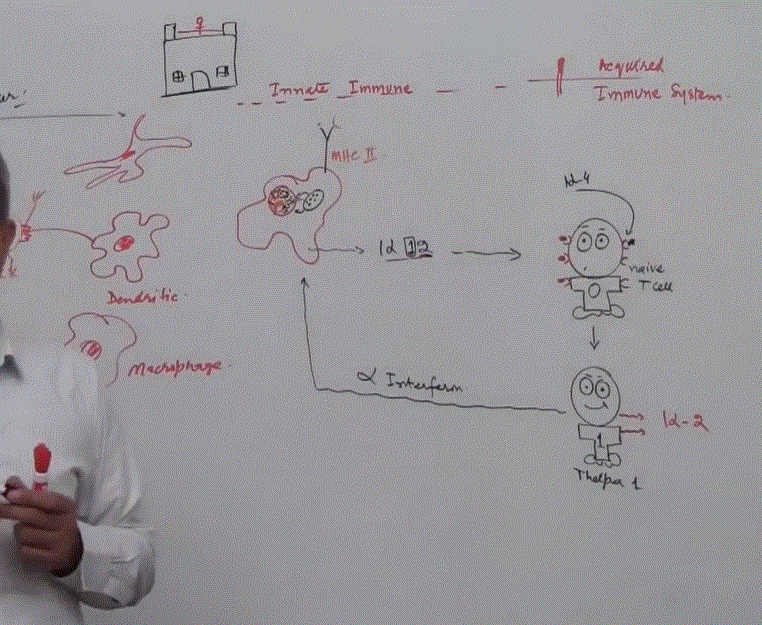 Innate Immune
Acquired
Immune System.
MHC II
Id-4
Id 12
naive
T cell
Dendritic
Macrophage
α Interferon
Id-2
1
Thelper 1